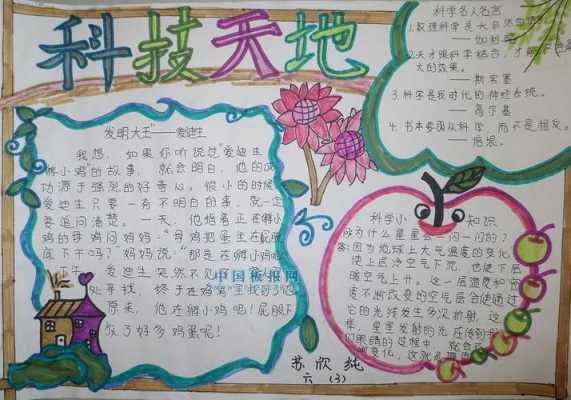 科技天地
发明大王"——爱迪生
我想，如果你听说过"爱迪生
孵小鸡"的故事，就会明白，他的成
功源于强烈的好奇心。很小的时候
爱迪生只要一有不明白的事，就一定
要追问清楚。一天，他指着正在孵小
鸡的母鸡问妈妈："母鸡把蛋坐在屁股
底下干吗？"妈妈说："那是在孵小鸡
爱迪生突然不见
处寻找，终于在鸡窝里找到了他
原来，他在孵小鸡呢！屁股下
放了好多鸡蛋呢！
中国板报网
科学名人名言
1.数理科学是大自然的
——伽利略
2.天才跟科学结合，才能
大的效果。
——斯宾塞
3.科学是我时代的神经系统。
——高尔基
4.书本要服从科学，而不是相反。
——培根。
科学小知识
问为什么星星会一闪一闪的？
答:因为地球上大气温度的变化
使上层冷空气下沉，也使下层
暖空气上升。这一层温度和密
度不断改变的空气层会使通过
它的光线发生多次折射，这
样，星星发射的光在传到
们眼睛的过程中，就会
变化，这就
苏欣纯
六（3）